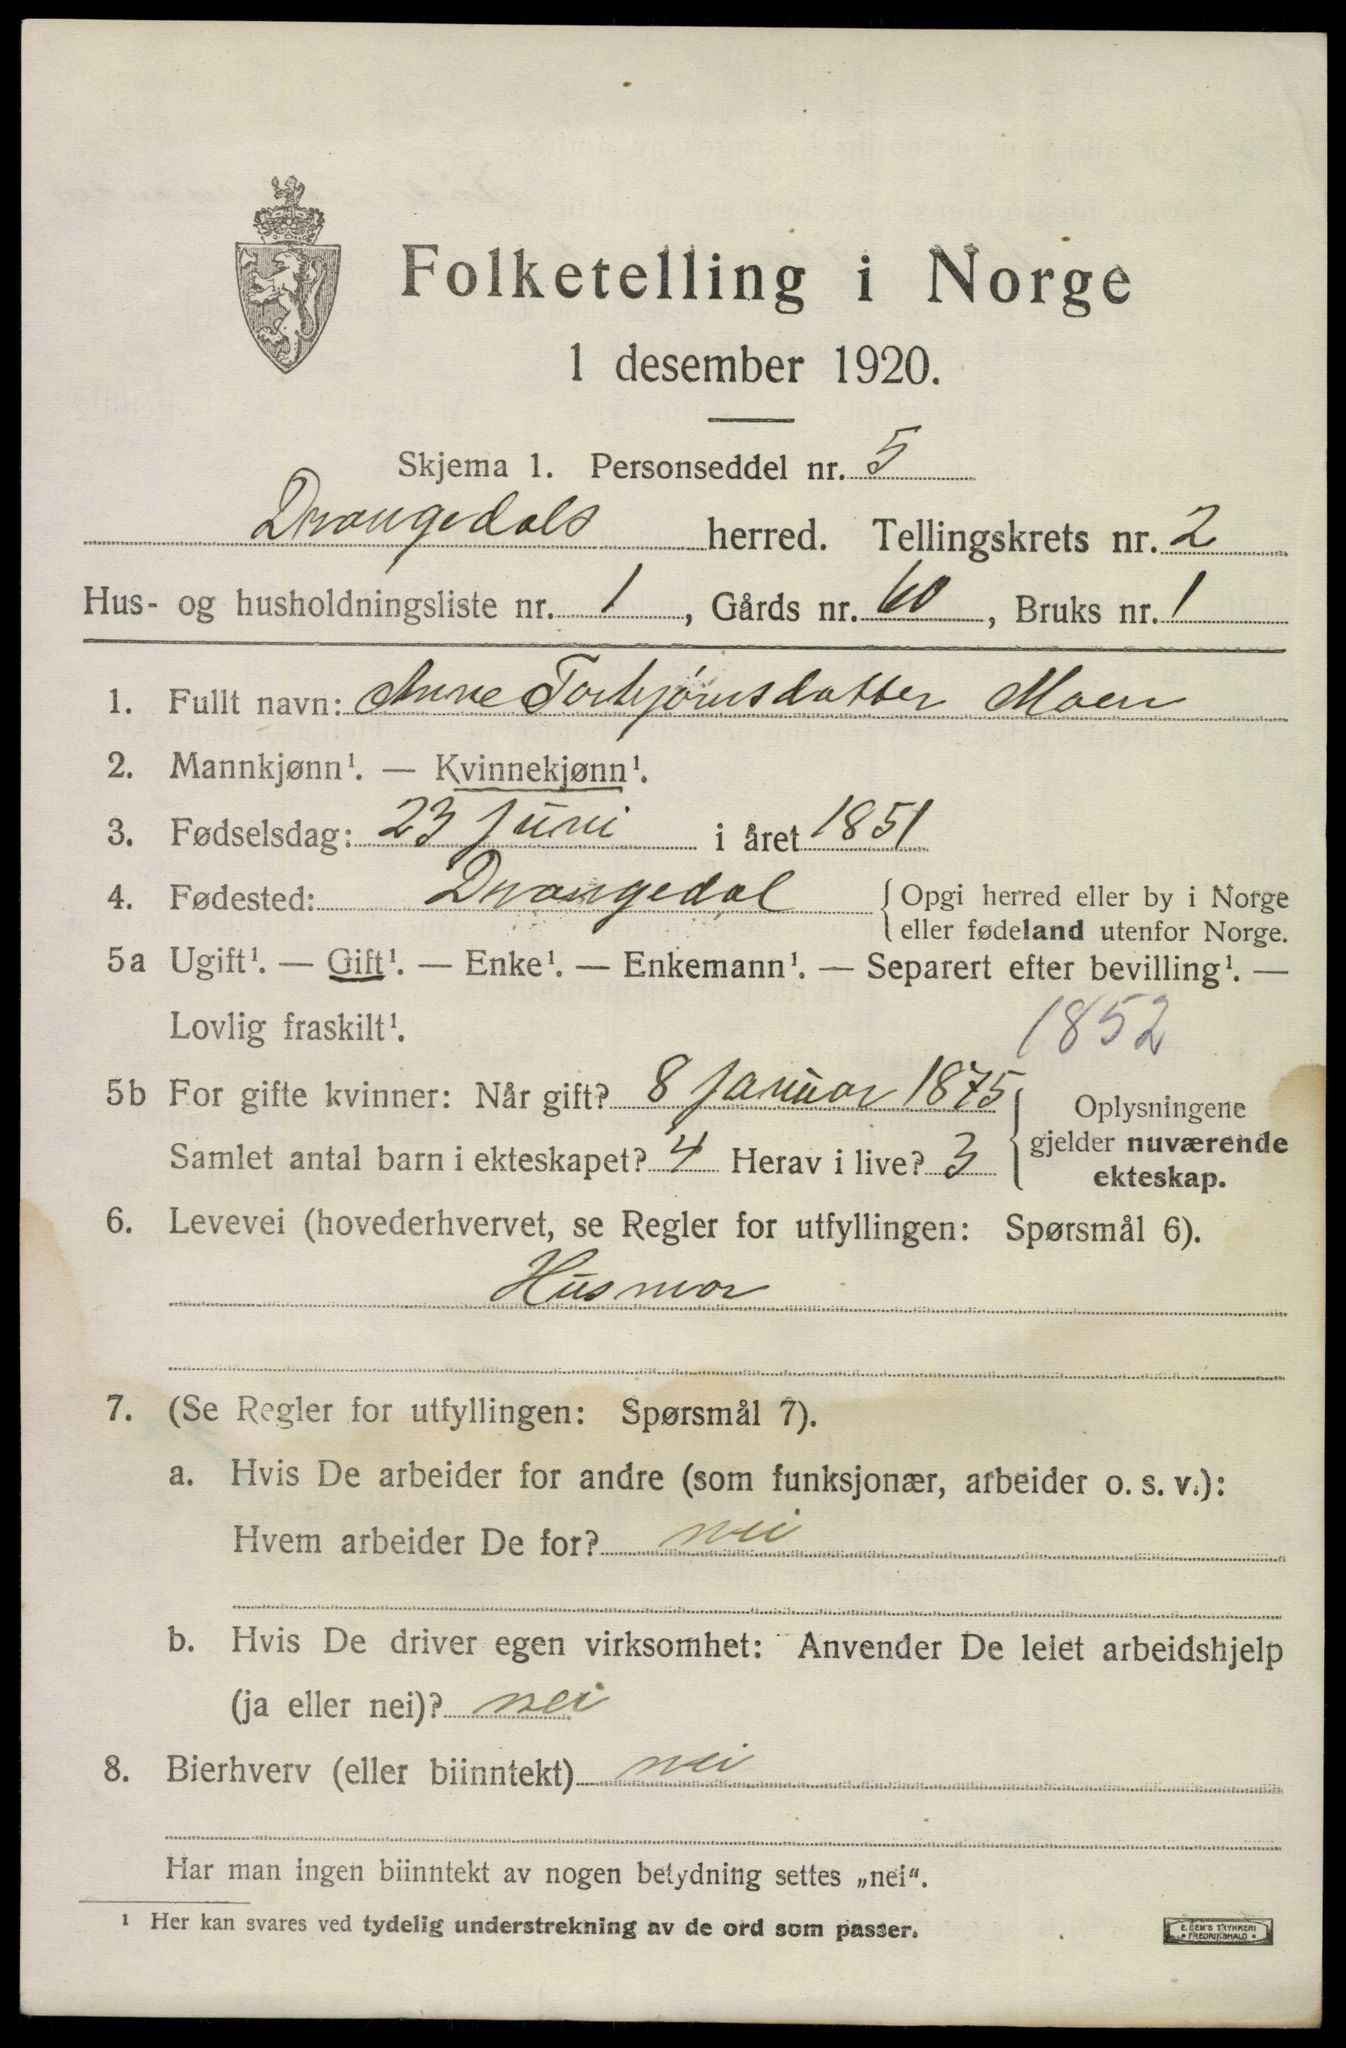 Folketelling i Norge
1 desember 1920.
Skjema 1. Personseddel nr. 5
Drangedals herred. Tellingskrets nr. 2
Hus- og husholdningsliste nr. 1, Gårds nr. 60, Bruks nr. 1
1. Fullt navn: Anne Torbjørnsdatter Moen
2. Mannkjønn¹. — Kvinnekjønn¹.
3. Fødselsdag: 23 Juni i året 1851
4. Fødested: Drangedal { Opgi herred eller by i Norge
eller fødeland utenfor Norge.
5a Ugift¹. — Gift¹. — Enke¹. — Enkemann¹. — Separert efter bevilling¹. —
Lovlig fraskilt¹. 1852
5b For gifte kvinner: Når gift? 8 Januar 1875 { Oplysningene
Samlet antal barn i ekteskapet? 4 Herav i live? 3 gjelder nuværende
ekteskap.
6. Levevei (hovederhvervet, se Regler for utfyllingen: Spørsmål 6).
Husmor
7. (Se Regler for utfyllingen: Spørsmål 7).
a. Hvis De arbeider for andre (som funksjonær, arbeider o. s. v.):
Hvem arbeider De for? nei
b. Hvis De driver egen virksomhet: Anvender De leiet arbeidshjelp
(ja eller nei)? nei
8. Bierhverv (eller biinntekt) nei
Har man ingen biinntekt av nogen betydning settes „nei“.
¹ Her kan svares ved tydelig understrekning av de ord som passer.
E. SEM'S TRYKKERI
FREDRIKSHALD